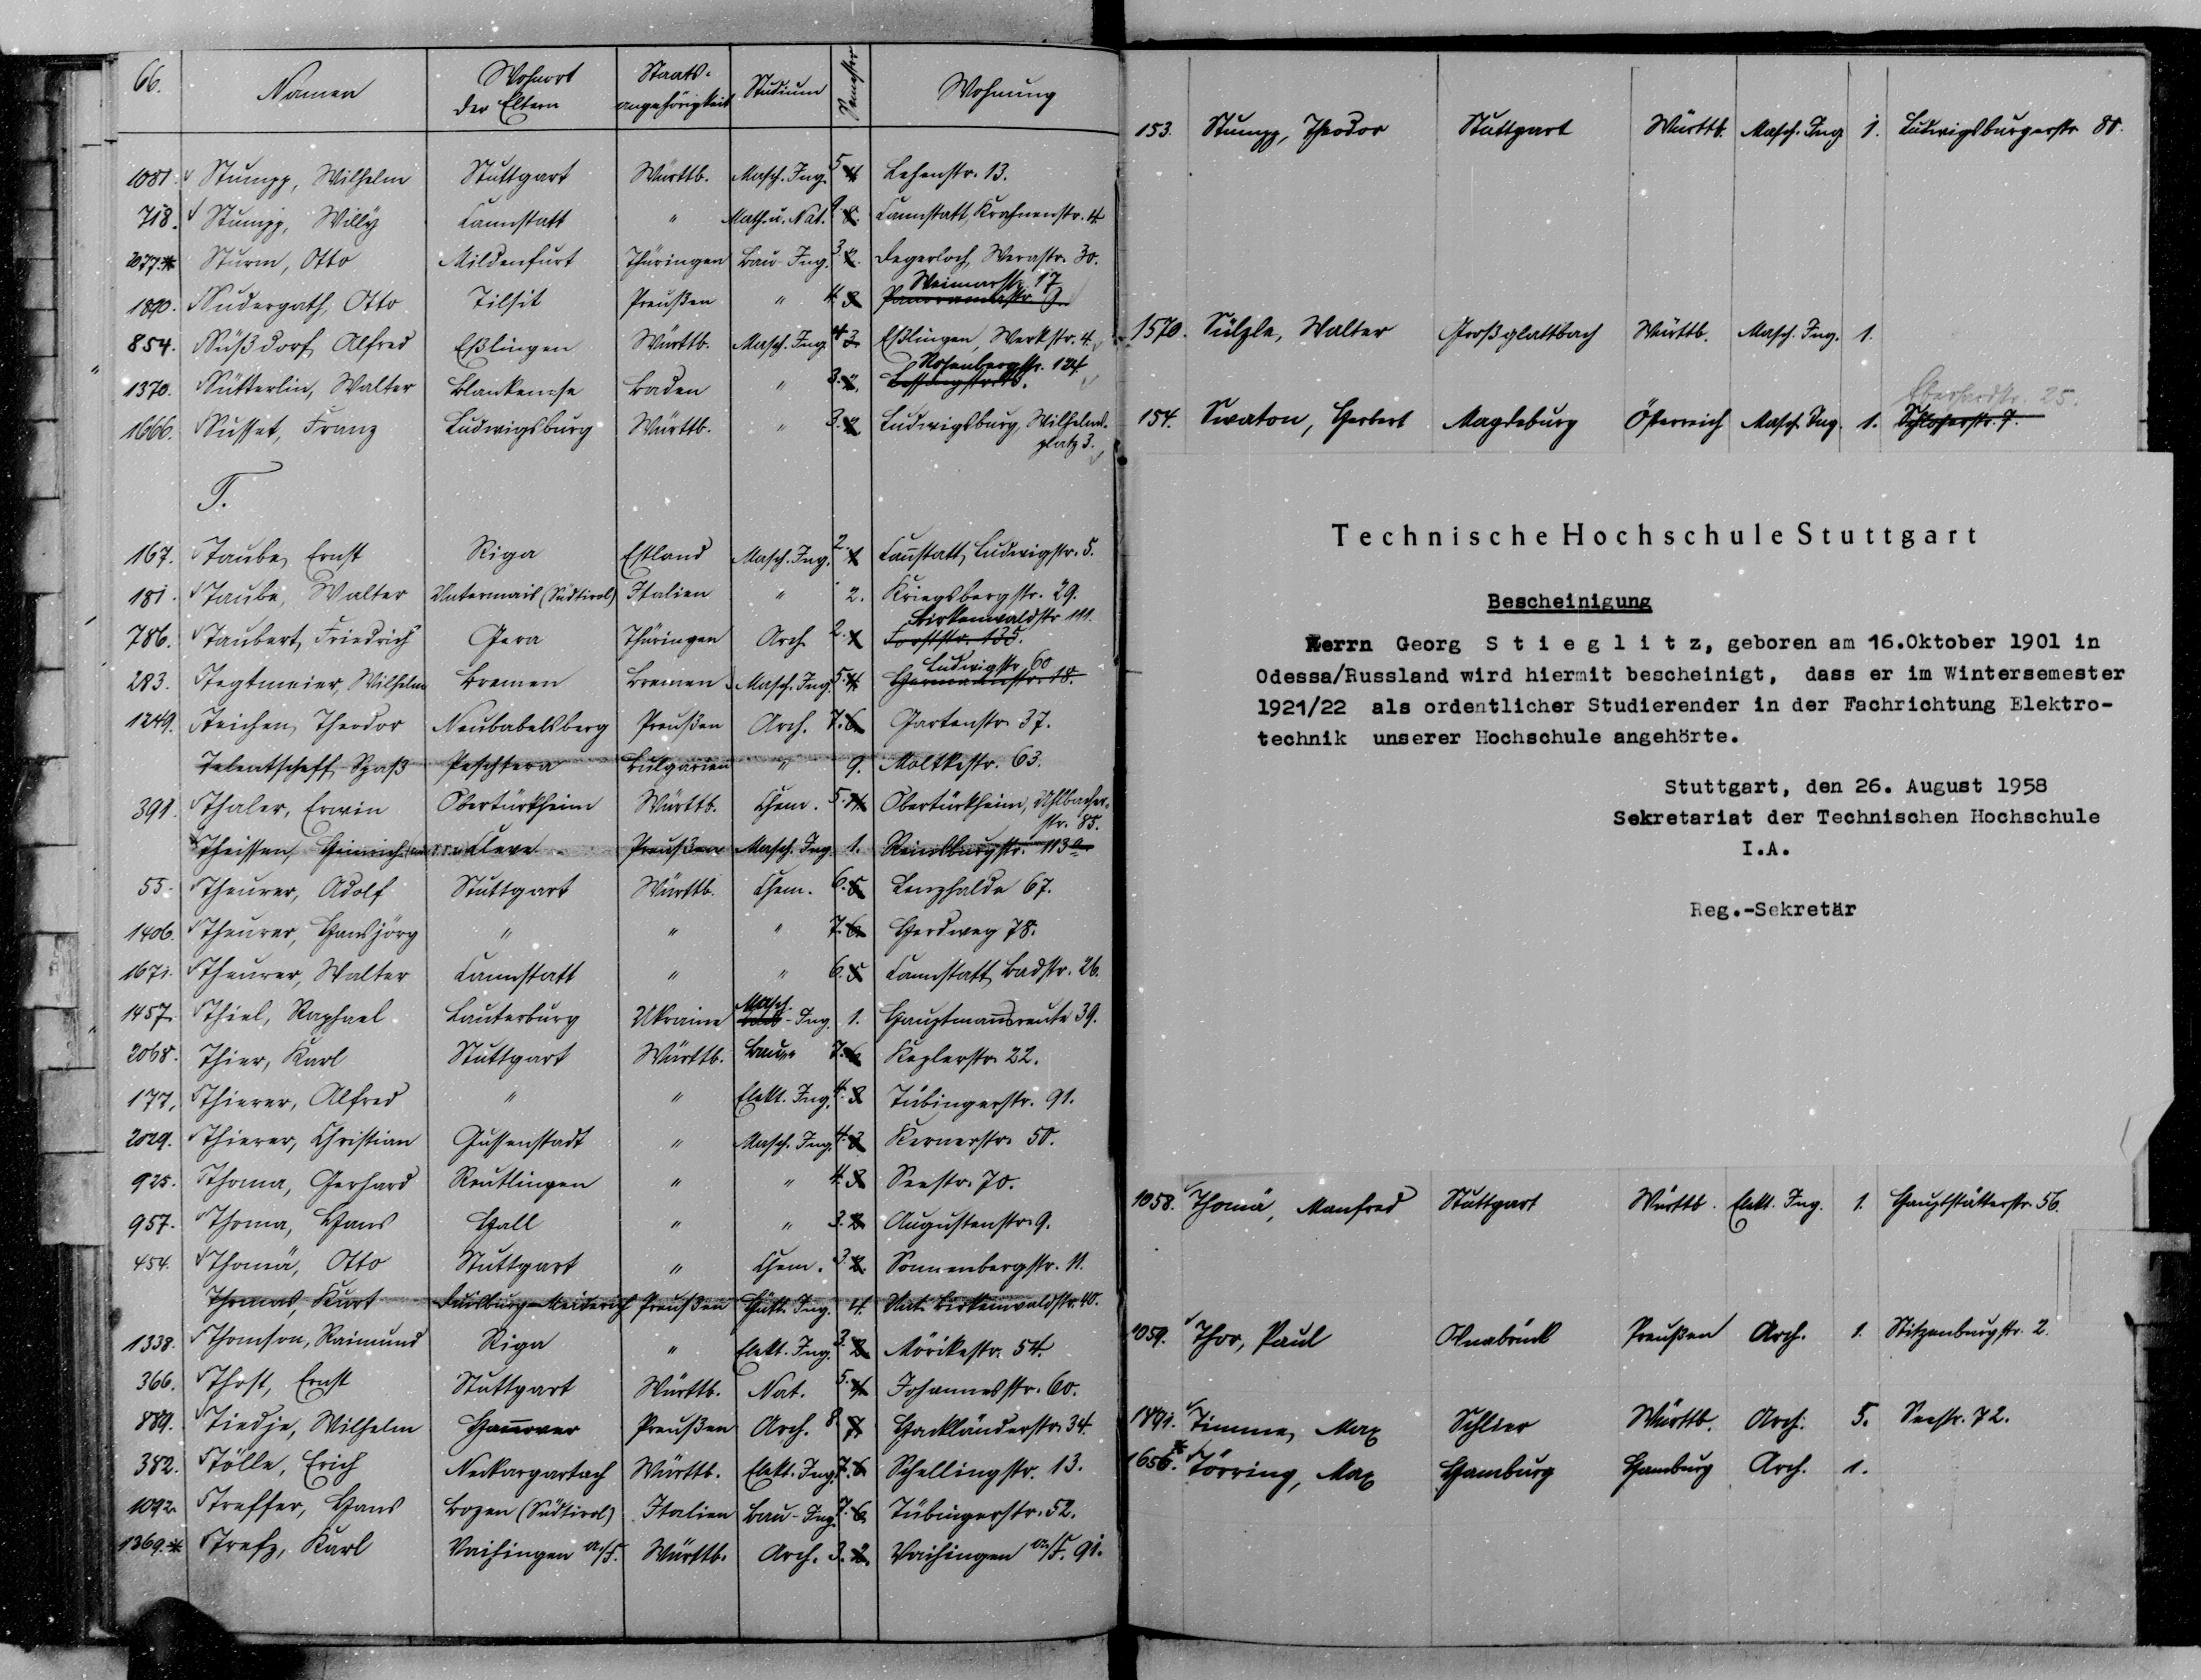 66. Namen Wohnort der Eltern Staats- angehörigkeit Studium Semester Wohnung
1081. Stumpp, Wilhelm Stuttgart Württb. Masch. Ing. 5 4 Lehenstr. 13.
718. Stumpp, Willy Cannstatt " Math. u. Nat. Cannstatt, Krahnenstr. 4
2077.* Sturm, Otto Mildenfurt Thüringen Bau-Ing. 3 2. Degerloch, Werastr. 30.
Weimarstr. 17
1890. Sudergath, Otto Tilsit Preußen " 4. 3 Panoramastr. 9
854. Süßdorf, Alfred Eßlingen Württb. Masch. Ing. 4 3 Eßlingen, Werkstr. 4.
Rosenbergstr. 124
1370. Sütterlin, Walter Blankensee Baden " 3. 2.
1666. Susset, Franz Ludwigsburg Württb. " 3. 2. Ludwigsburg, Wilhelms-
platz 3.
T.
167. Taube, Ernst Riga Estland Masch. Ing. 2. 1 Canstatt, Ludwigstr. 5.
181. Taube, Walter Untermais (Südtirol) Italien " 2. Kriegsbergstr. 29.
Birkenwaldstr. 111.
786. Taubert, Friedrich Gera Thüringen Arch. 2. 1 Forststr. 135.
Ludwigstr. 60
283. Tegtmeier, Wilhelm Bremen Bremen Masch. Ing. 5. 4 Hermannstr. 18.
1249. Teichen, Theodor Neubabelsberg Preußen Arch. 7. 6. Gartenstr. 37.
Telentscheff, Spaß Peschtera Bulgarien " 9. Moltkestr. 63.
391. Thaler, Erwin Obertürkheim Württb. Chem. 5. 4 Obertürkheim, Uhlbacher-
str. 85.
Theissen, Heinrich Cleve Preußen Masch. Ing. 1. Reinsburgstr. 113a
55. Theurer, Adolf Stuttgart Württb. Chem. 6. 5 Lenzhalde 67.
1406. Theurer, Hansjörg " " " 7. 6. Herdweg 78.
1671. Theurer, Walter Cannstatt " " 6. 5 Cannstatt, Badstr. 26.
Masch.
1457. Thiel, Raphael Lauterburg Ukraine Bau-Ing. 1. Hauptmannsreute 39.
2068. Thier, Karl Stuttgart Württb. Bau " 7. 6 Keplerstr. 22.
177. Thierer, Alfred " " Elekt. Ing. 4. 3 Tübingerstr. 91.
2029. Thierer, Christian Gussenstadt " Masch. Ing. 4. 3 Kernerstr. 50.
925. Thoma, Gerhard Reutlingen " " 4. 3 Seestr. 70.
957. Thoma, Hans Hall " " 3. 2 Augustenstr. 9.
454. Thomä, Otto Stuttgart " Chem. 3. 2. Sonnenbergstr. 11.
Thomas, Kurt Duisburg-Meiderich Preußen Hütt. Ing. 4. Unt. Birkenwaldstr. 40.
1338. Thomson, Raimund Riga " Elekt. Ing. 3. 2. Mörikestr. 54.
366. Thost, Ernst Stuttgart Württb. Nat. 5. 4 Johannesstr. 60.
889. Tiedje, Wilhelm Hannover Preußen Arch. 8. 7. Hackländerstr. 34.
382. Tölle, Erich Neckargartach Württb. Elekt. Ing. 7. 6 Schellingstr. 13.
1092. Treffer, Hans Bozen (Südtirol) Italien Bau-Ing. 7. 6 Tübingerstr. 52.
1369.* Trefz, Karl Vaihingen a/F. Württb. Arch. 3. 2. Vaihingen a/F. 91.
153. Stumpp, Theodor Stuttgart Württb. Masch. Ing. 1. Ludwigsburgerstr. 88.
1570. Sülzle, Walter Großglattbach Württb. Masch. Ing. 1.
Eberhardstr. 25.
154. Swaton, Herbert Magdeburg Österreich Masch. Ing. 1. Schloßerstr. 7.
Technische Hochschule Stuttgart
Bescheinigung
Herrn Georg Stieglitz, geboren am 16.Oktober 1901 in
Odessa/Russland wird hiermit bescheinigt, dass er im Wintersemester
1921/22 als ordentlicher Studierender in der Fachrichtung Elektro-
technik unserer Hochschule angehörte.
Stuttgart, den 26. August 1958
Sekretariat der Technischen Hochschule
I.A.
Reg.-Sekretär
1058. Thomä, Manfred Stuttgart Württb. Elekt. Ing. 1. Hauptstätterstr. 56.
1059. Thor, Paul Osnabrück Preußen Arch. 1. Stitzenburgstr. 2.
1891. Timme, Max Schlier Württb. Arch. 5. Seestr. 72.
1656.* Törring, Max Hamburg Hamburg Arch. 1.